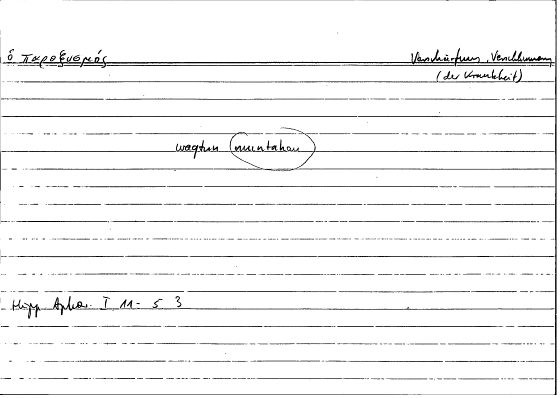 ὁ παροξυσμός Verschärfung, Verschlimmerung
(der Krankheit)
waqtun muntahan
Hipp. Aphor. I 11 - 5 3